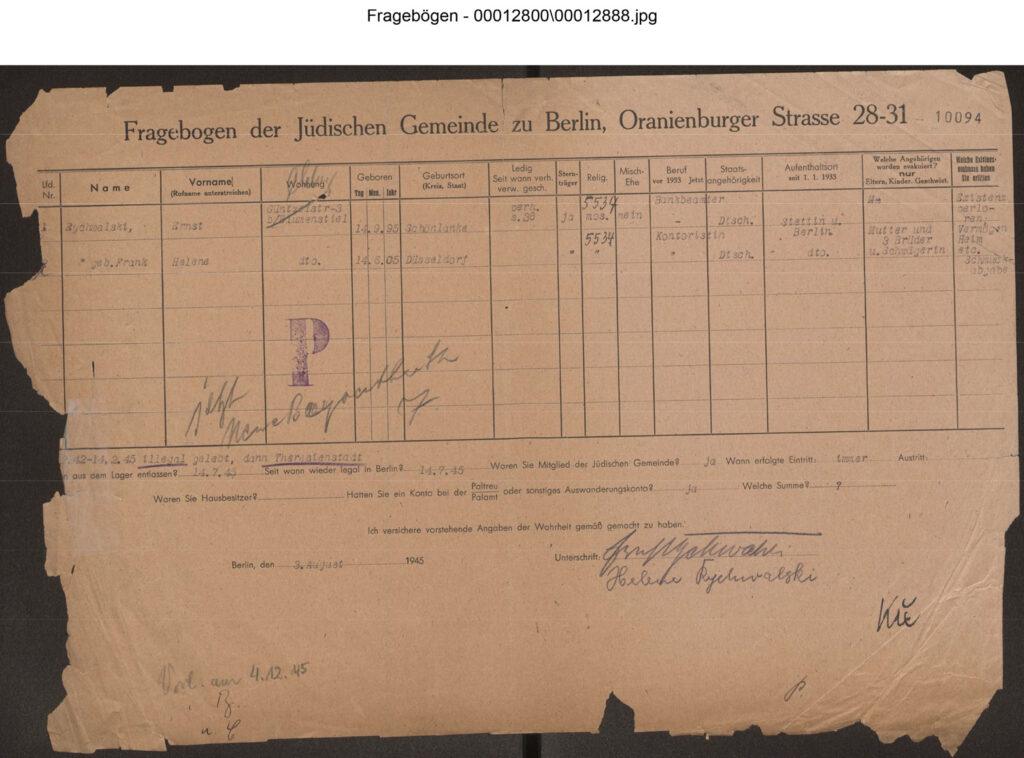 Fragebögen - 00012800\00012888.jpg
Fragebogen der Jüdischen Gemeinde zu Berlin, Oranienburger Strasse 28-31 10094
lfd. Nr. Name Vorname (Rufname unterstreichen) Wohnung Geboren Tag Mon. Jahr Geburtsort (Kreis, Staat) Ledig Seit wann verh. verw. gesch. Sternträger Relig. Misch-Ehe Beruf vor 1933 Jetzt Staatsangehörigkeit Aufenthaltsort seit 1. 1. 1933 Welche Angehörigen wurden evakuiert? nur Eltern, Kinder, Geschwist. Welche Existenz- haben Sie erlitten
Güntzelstr-3 verh. 5534 Bankbeamter Existenz
b/Blumenstiel s.38 ja mos. nein - Dtsch. Stettin u. verloren,
1. Rychwalski, Ernst 14.9.95 Schönlanke Berlin Mutter und Vermögen
5534 Kontoristin 3 Brüder Heim
" geb.Frank Helene dto. 14.6.05 Düsseldorf " " " Dtsch. " dto. u.Schwägerin etc.
Schmuck-
abgabe
P
jetzt
Neue Bayreuther
7
42-14.2.45 illegal gelebt, dann Theresienstadt
n aus dem Lager entlassen? 14.7.45 Seit wann wieder legal in Berlin? 14.7.45 Waren Sie Mitglied der Jüdischen Gemeinde? ja Wann erfolgte Eintritt: immer Austritt:
Waren Sie Hausbesitzer? Hatten Sie ein Konto bei der Paltreu Palamt oder sonstiges Auswanderungskonto? ja Welche Summe? ?
Ich versichere vorstehende Angaben der Wahrheit gemäß gemacht zu haben.
Berlin, den 3. August 1945 Unterschrift: Ernst Rychwalski
Helene Rychwalski
4.12.45
P.